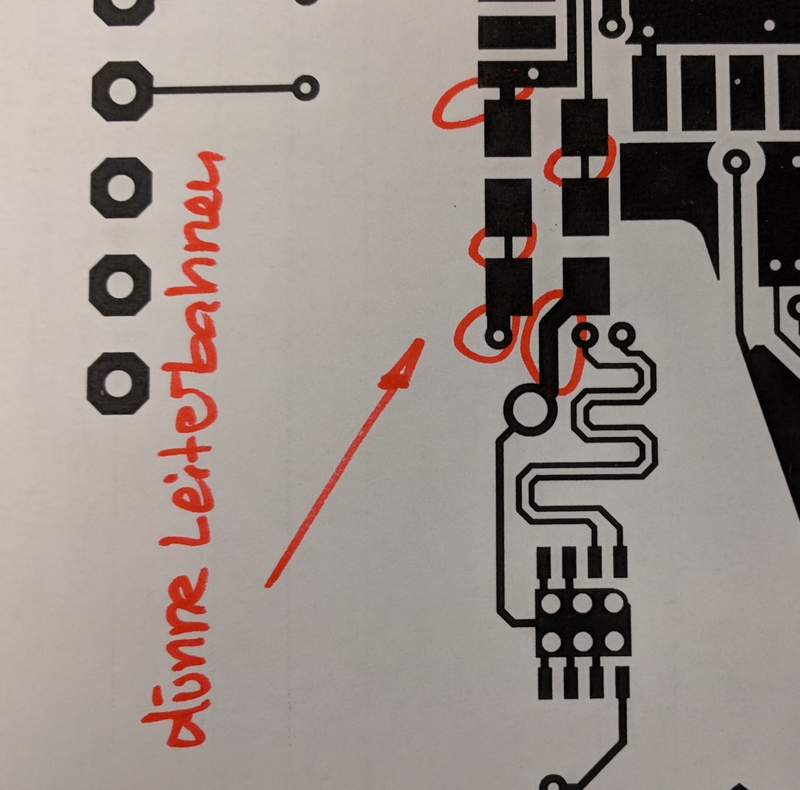 dünne Leiterbahnen